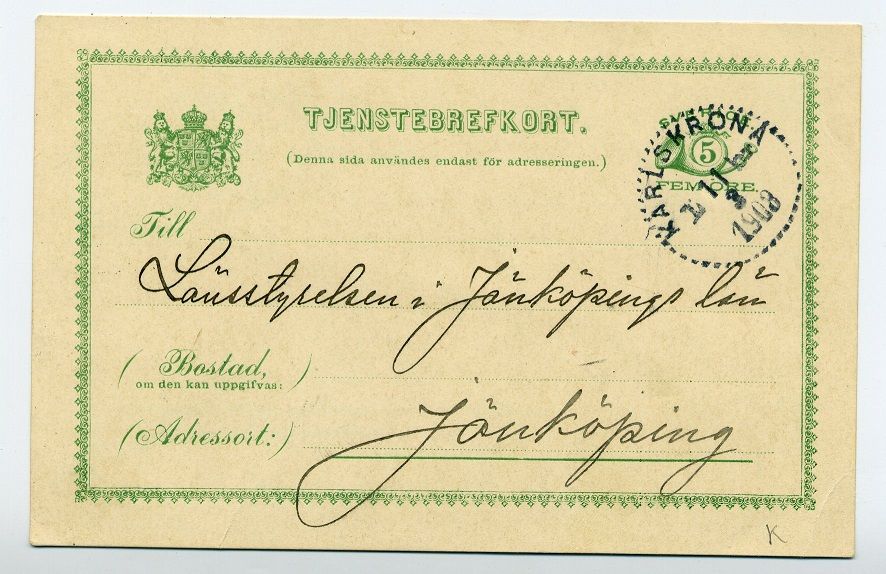 TJENSTEBREFKORT.
(Denna sida användes endast för adresseringen.)
5
FEM ÖRE.
KARLSKRONA
1903
Till
Länsstyrelsen i Jönköpings län
(Bostad,)
om den kan uppgifvas:
(Adressort:)
Jönköping
K